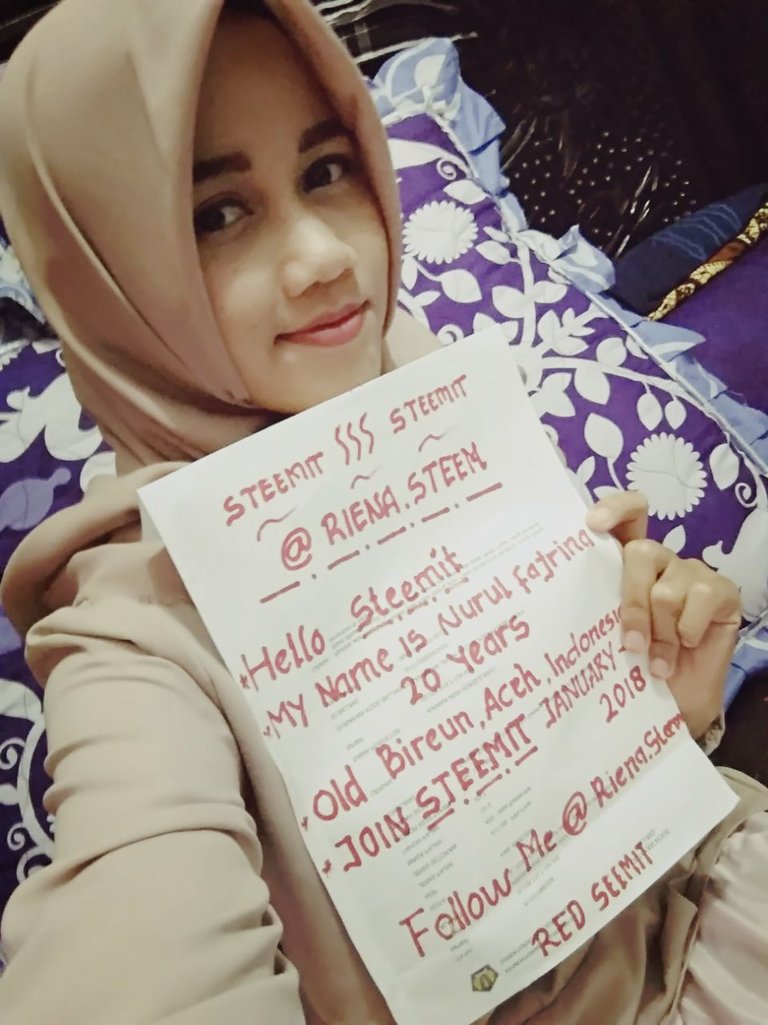 STEEMIT SSS STEEMIT
@ RIENA.STEEM
*Hello Steemit
*MY Name IS Nurul Fajrina
20 Years
*Old Bireun, Aceh, Indonesia
*JOIN STEEMIT JANUARY-
2018
Follow Me @ Riena.Steem
RED SEEMIT